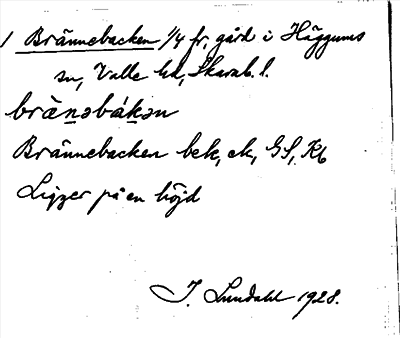 1 Brännebacken 1/4 fr, gård i Häggums
sn, Valle hd, Skarab. l.
brä̀n̲əbák̲ən
Brännebacken bek, ek, GS, Kb
Ligger på en höjd
I. Lundahl 1928.